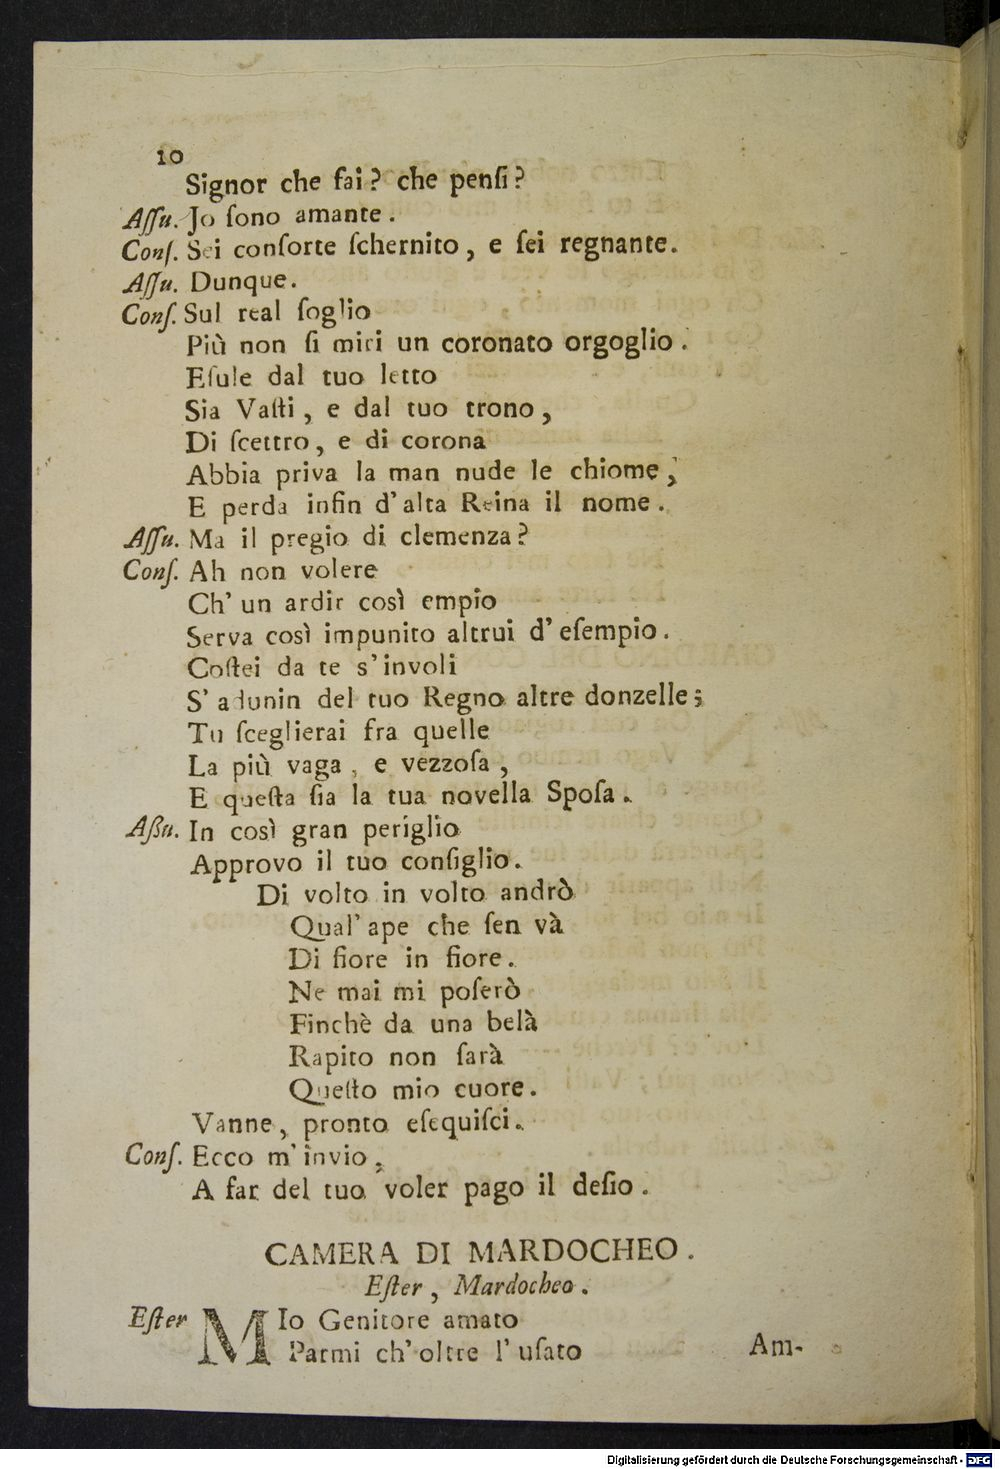 10
Signor che fai? che penſi?
Aſſu. Jo ſono amante.
Conſ. Sei conſorte ſchernito, e ſei regnante.
Aſſu. Dunque.
Conſ. Sul real ſoglio
Più non ſi miri un coronato orgoglio.
Eſule dal tuo letto
Sia Vaſti, e dal tuo trono,
Di ſcettro, e di corona
Abbia priva la man nude le chiome,
E perda infin d'alta Reina il nome.
Aſſu. Ma il pregio di clemenza?
Conſ. Ah non volere
Ch'un ardir così empio
Serva così impunito altrui d'eſempio.
Coſtei da te s'involi
S'adunin del tuo Regno altre donzelle;
Tu ſceglierai fra quelle
La più vaga, e vezzoſa,
E queſta ſia la tua novella Spoſa.
Aßu. In così gran periglio
Approvo il tuo conſiglio.
Di volto in volto andrò
Qual'ape che ſen và
Di fiore in fiore.
Ne mai mi poſerò
Finchè da una belà
Rapito non ſarà
Queſto mio cuore.
Vanne, pronto eſequiſci.
Conſ. Ecco m'invio,
A far del tuo voler pago il deſio.
CAMERA DI MARDOCHEO.
Eſter, Mardocheo.
Eſter MIo Genitore amato
Parmi ch'oltre l'uſato
Am-
Digitalisierung gefördert durch die Deutsche Forschungsgemeinschaft - DFG